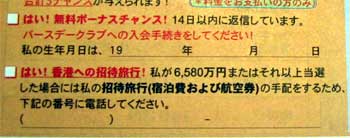 *料金をお支払いの方のみ
□ はい! 無料ボーナスチャンス! 14日以内に返信しています。
バースデークラブへの入会手続きをしてください!
私の生年月日は、19 年 月 日
□ はい! 香港への招待旅行! 私が6,580万円またはそれ以上当選
した場合には私の招待旅行(宿泊費および航空券)の手配をするため、
下記の番号に電話してください。
( ) −